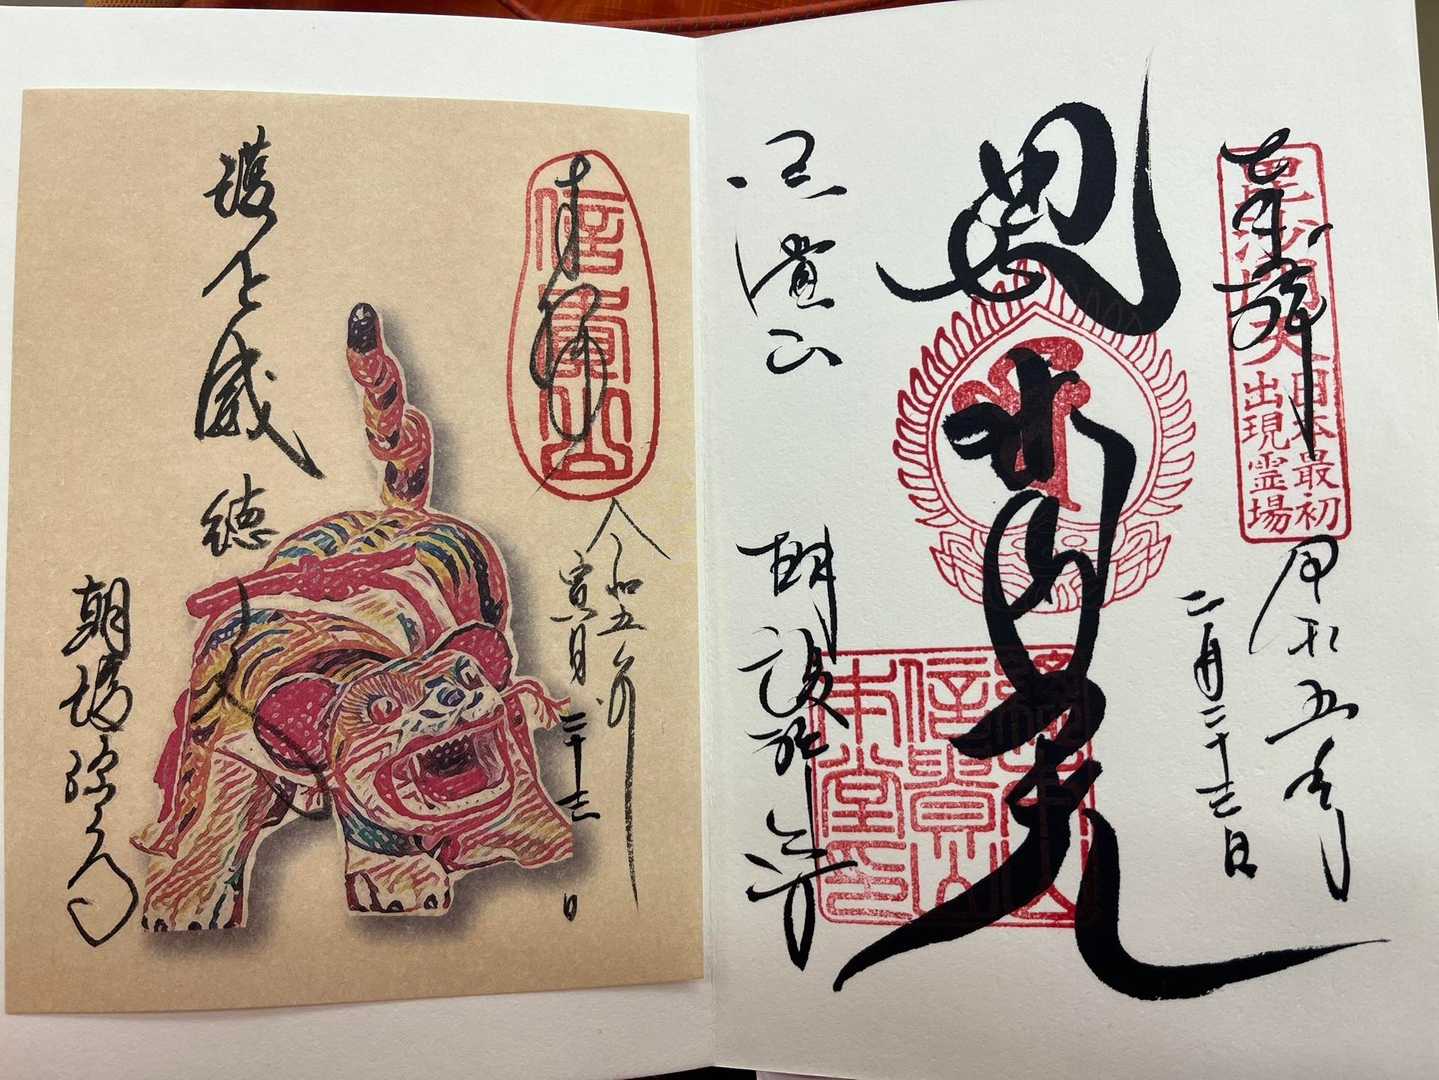 奉拝
毘沙門天
日本最初
出現霊場
令和五年
二月二十三日
毘沙門天
信貴山
朝護孫子寺
信貴山
本堂印
奉拝
信貴山
令和五年
寅月二十三日
朝護孫子寺